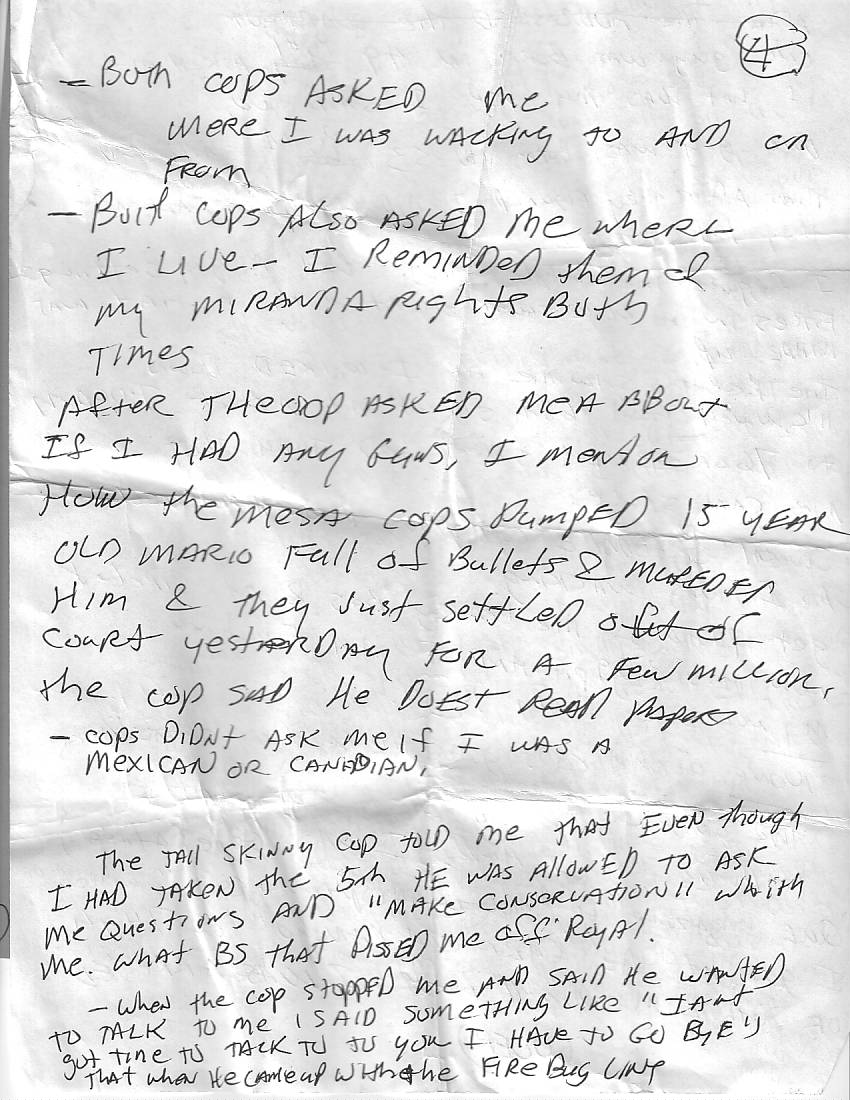 4
- Both cops ASKED me
where I was walking to AND
From
- Both cops Also ASKED me where
I LIVE - I REMINDED them of
my MIRANDA Rights Both
Times
After THe cop ASKED me A BBout
If I HAD Any Guns, I mention
How the mesa cops Pumped 15 YEAR
OLD MARIO Full of Bullets &
Him & they Just settLED out of
Court yesterDAy FOR A Few million,
the cop SAD He DOEST READ PApers
- cops DiDNt ASK me if I was A
MexICAN OR CANADIAN,
The tall SKINNY Cop told me that EvEN though
I HAD TAKEN the 5th HE WAS AlloWED TO ASK
Me QuestIons AND "MAKE CONSERVATION" whith
me. What BS that PISSED me off Royal.
- when the cop stoppED me AND SAID He WANTED
TO TALK to me I SAID SOMETHING LIKE "I Ant
got time to TALK TO TO you I HAVE to GO ByE"
That when He came up with the FIRE Bug Line